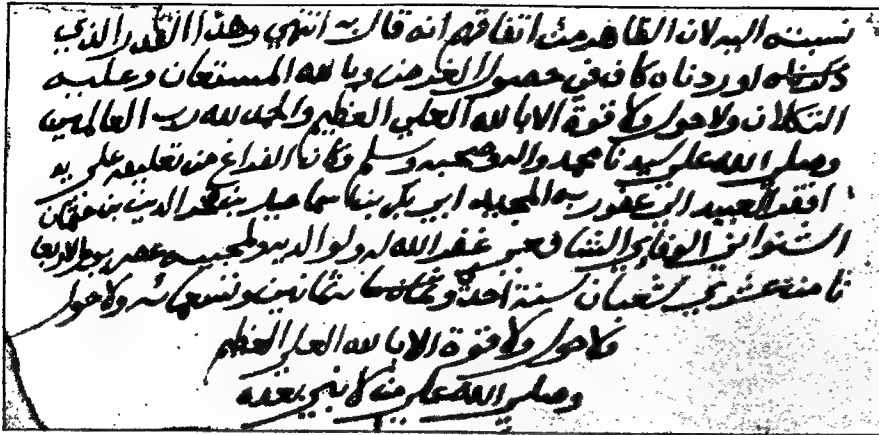 نسبته اليه لان الظاهر من اتفاقهم انه قال به انتهى وهذا القدر الذي
ذكرناه اوردناه كاف في حصول الغرض وبالله المستعان وعليه
التكلان ولا حول ولا قوة الا بالله العلي العظيم والحمد لله رب العالمين
وصلى الله على سيدنا محمد واله وصحبه وسلم وكان الفراغ من تعليقه على يد
افقر العبيد الى عفو ربه المجيد ابي بكر بن اسماعيل بن فخر الدين بن عثمان
الشنواني الوفائي الشافعي غفر الله له ولوالديه ولمحبيه عصر يوم الاربعا
ثامن عشري شعبان سنة احد وثمانين وتسعمائه ولا حول
ولا حول ولا قوة الا بالله العلي العظيم
وصلى الله على من لا نبي بعده